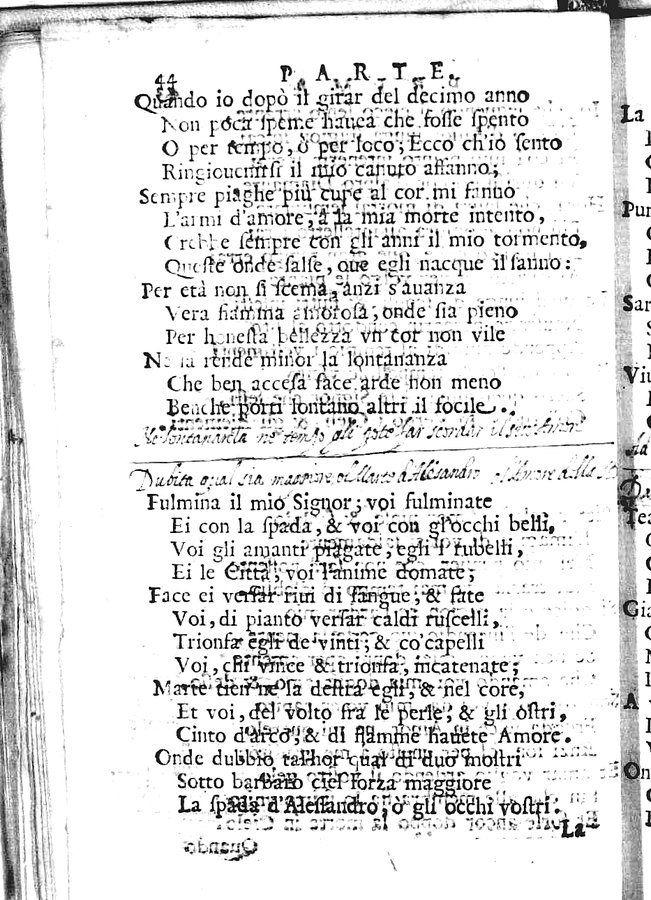 44 P. A. R. T. E.
Quando io dopò il girar del decimo anno
Non poca speme hauea che fosse spento
O per tempo, ò per loco; Ecco ch'io sento
Ringiouenirsi il mio canuto affanno;
Sempre piaghe più cupe al cor mi fanno
L'armi d'amore, à la mia morte intento,
Crebbe sempre con gli anni il mio tormento,
Queste onde salse, oue egli nacque il sanno:
Per età non si scema, anzi s'auanza
Vera fiamma amorosa, onde sia pieno
Per honesta bellezza vn cor non vile
Ne la rende minor la lontananza
Che ben accesa face arde non meno
Benche porti lontano altri il focile.
Ne lontananza ne tempo gli far scordar il suo Amore
Dubita qual sia maggiore, il Marte d'Alesandro o l'Amore della
Fulmina il mio Signor; voi fulminate
Ei con la spada, & voi con gl'occhi belli,
Voi gli amanti piagate, egli i rubelli,
Ei le Città, voi l'anime domate;
Face ei versar riui di sangue, & fate
Voi, di pianto versar caldi ruscelli,
Trionfa egli de vinti, & co' capelli
Voi, chi vince & trionfa, incatenate;
Marte tien ne la destra egli, & nel core,
Et voi, del volto fra le perle, & gli ostri,
Cinto d'arco, & di fiamme hauete Amore.
Onde dubbio tal'hor qual di duo mostri
Sotto barbaro ciel forza maggiore
La spada d'Alessandro, ò gli occhi vostri.
La